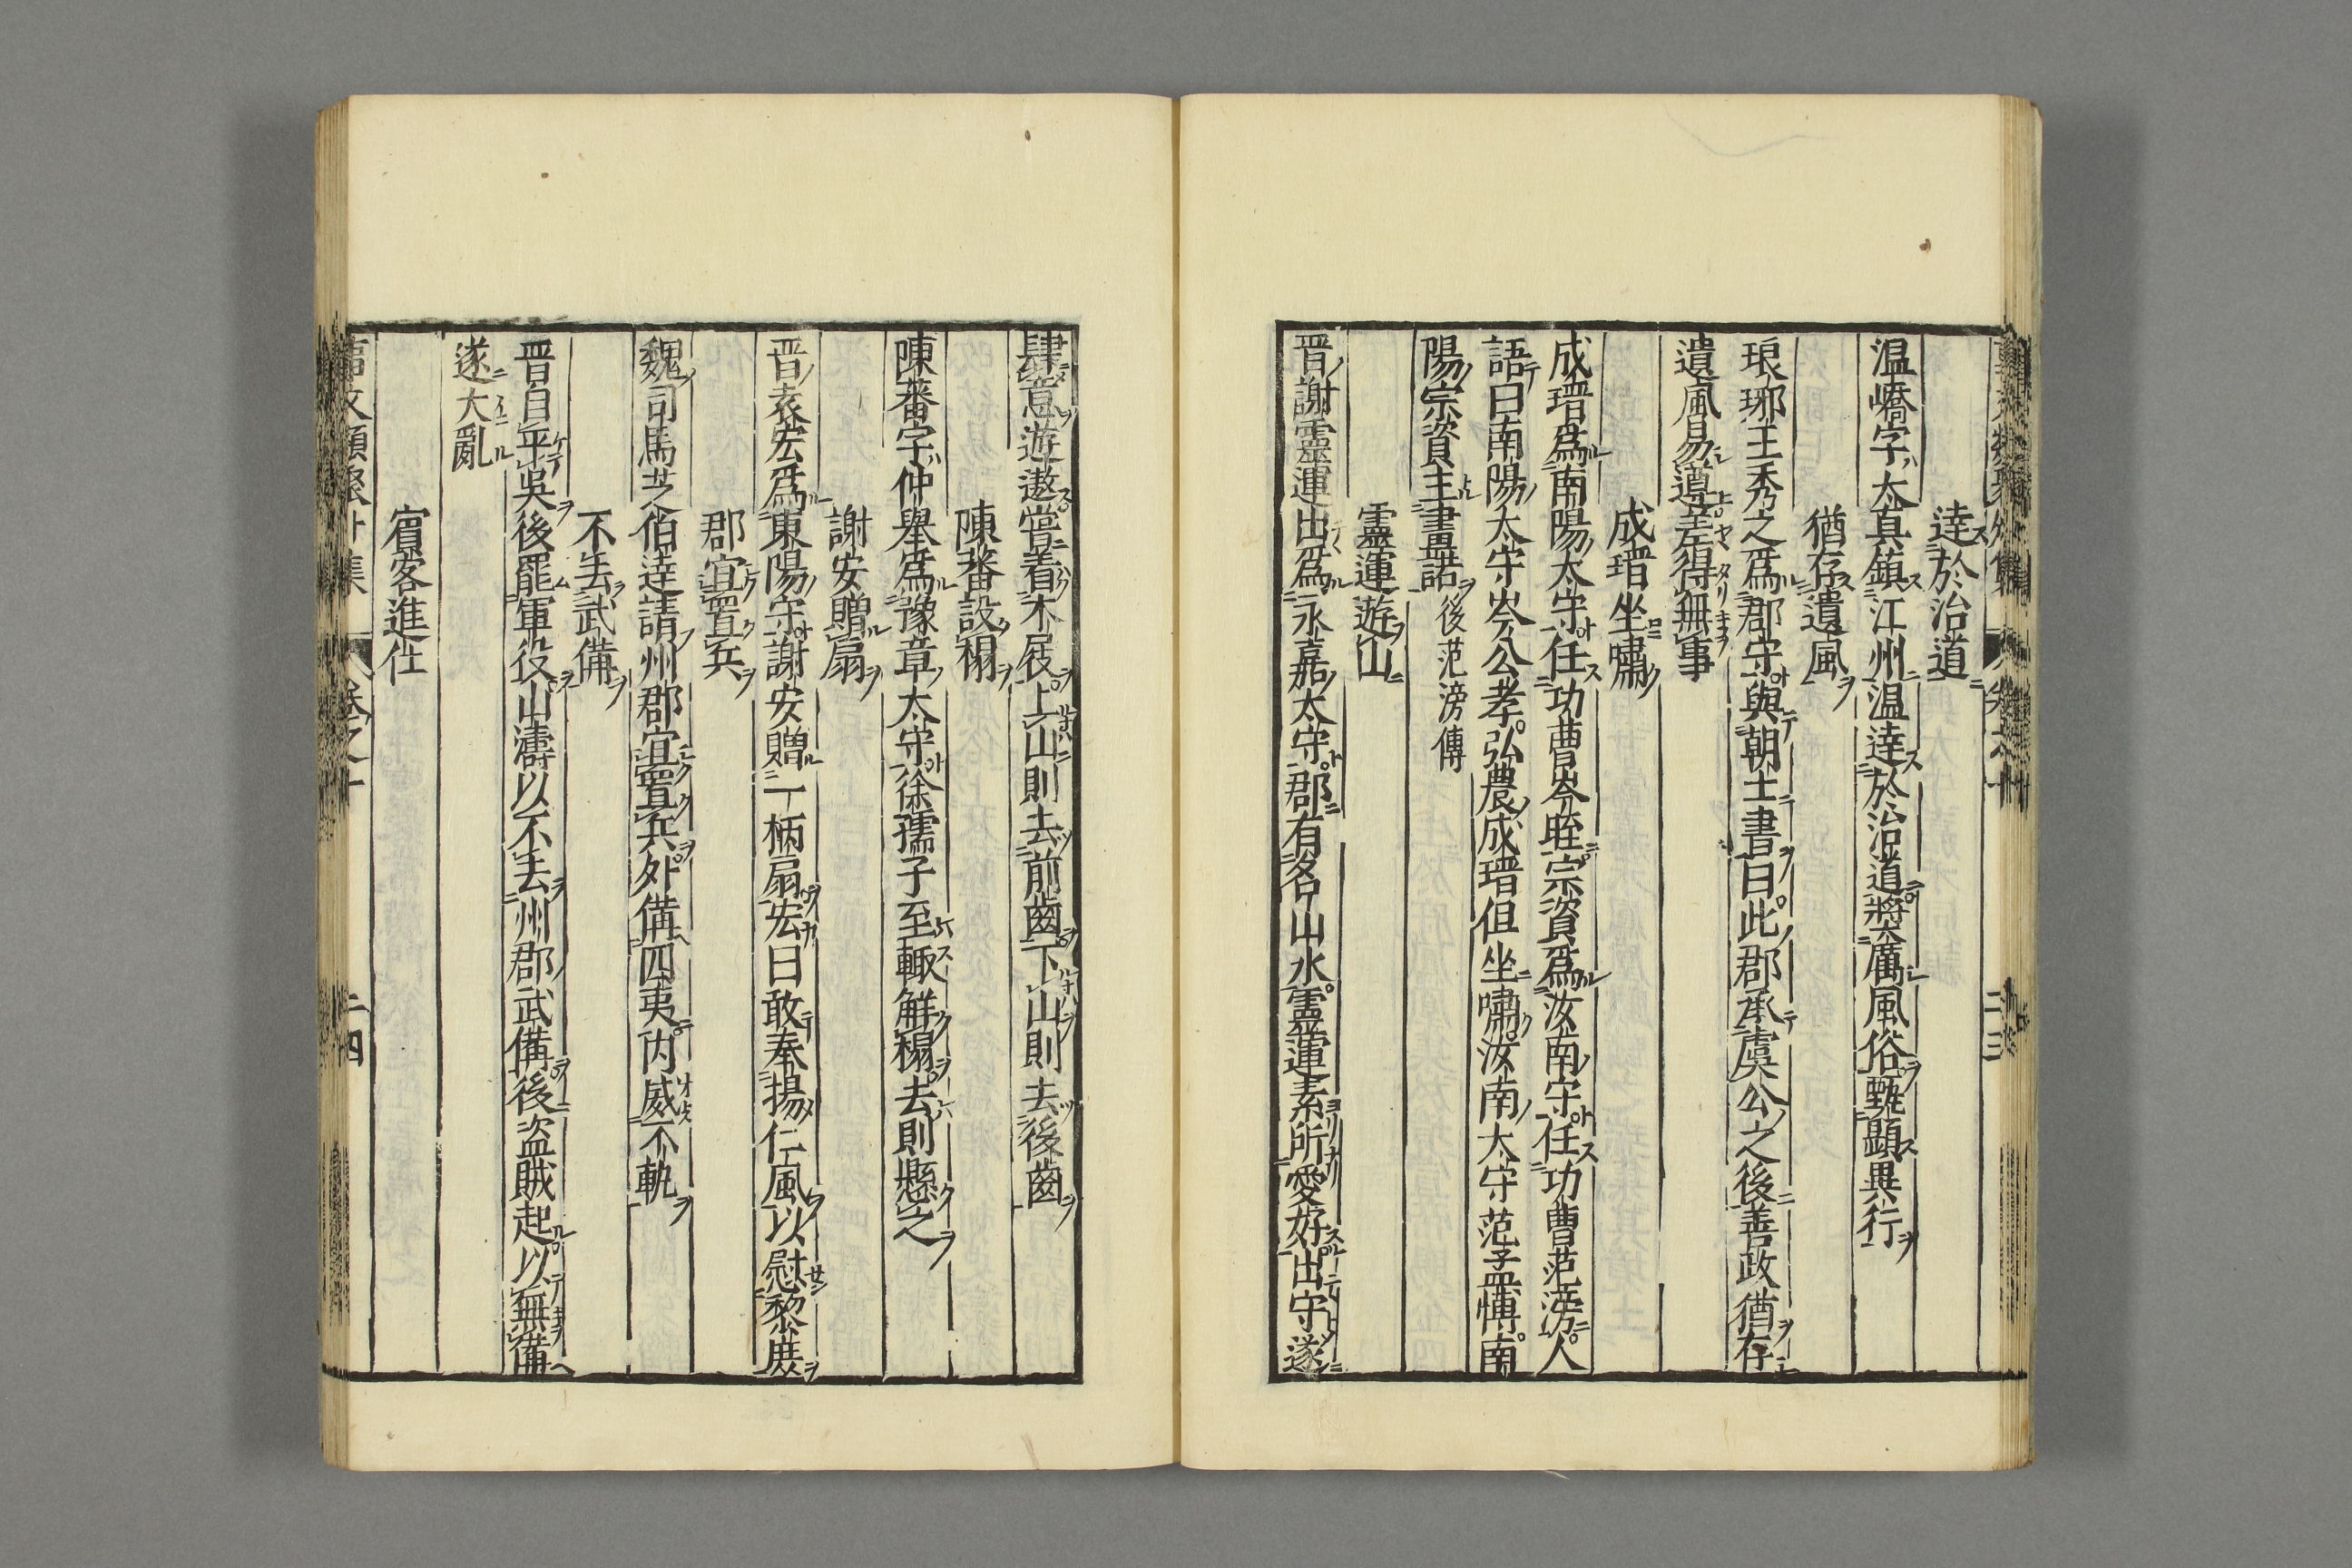 達於治道
温嶠字太真鎮江州温達於治道奬厲風俗甄顯異行
猶存遺風
琅琊王秀之爲郡守與朝士書曰此郡承虞公之後善政猶存
遺風易遵差得無事
成瑨坐嘯
成瑨爲南陽太守任功曹岑晊宗資爲汝南守任功曹范滂人
語曰南陽太守岑公孝弘農成瑨但坐嘯汝南太守范孟博南
陽宗資主畫諾後范滂傳
靈運遊山
晋謝靈運出爲永嘉太守郡有名山水靈運素所愛好出守遂
肆意遊遨嘗着木屐上山則去前齒下山則去後齒
陳蕃設榻
陳蕃字仲舉爲豫章太守徐孺子至輙觧榻去則懸之
謝安贈扇
晋袁宏爲東陽守謝安贈一柄扇宏曰敢奉揚仁風以慰黎庶
郡宜置兵
魏司馬芝伯達請州郡宜置兵外備四夷内威不軌
不去武備
晋自平吳後罷軍役山濤以不去州郡武備後盗賊起以無備
遂大亂
賔客進仕
事文類聚外集 卷之十 二四